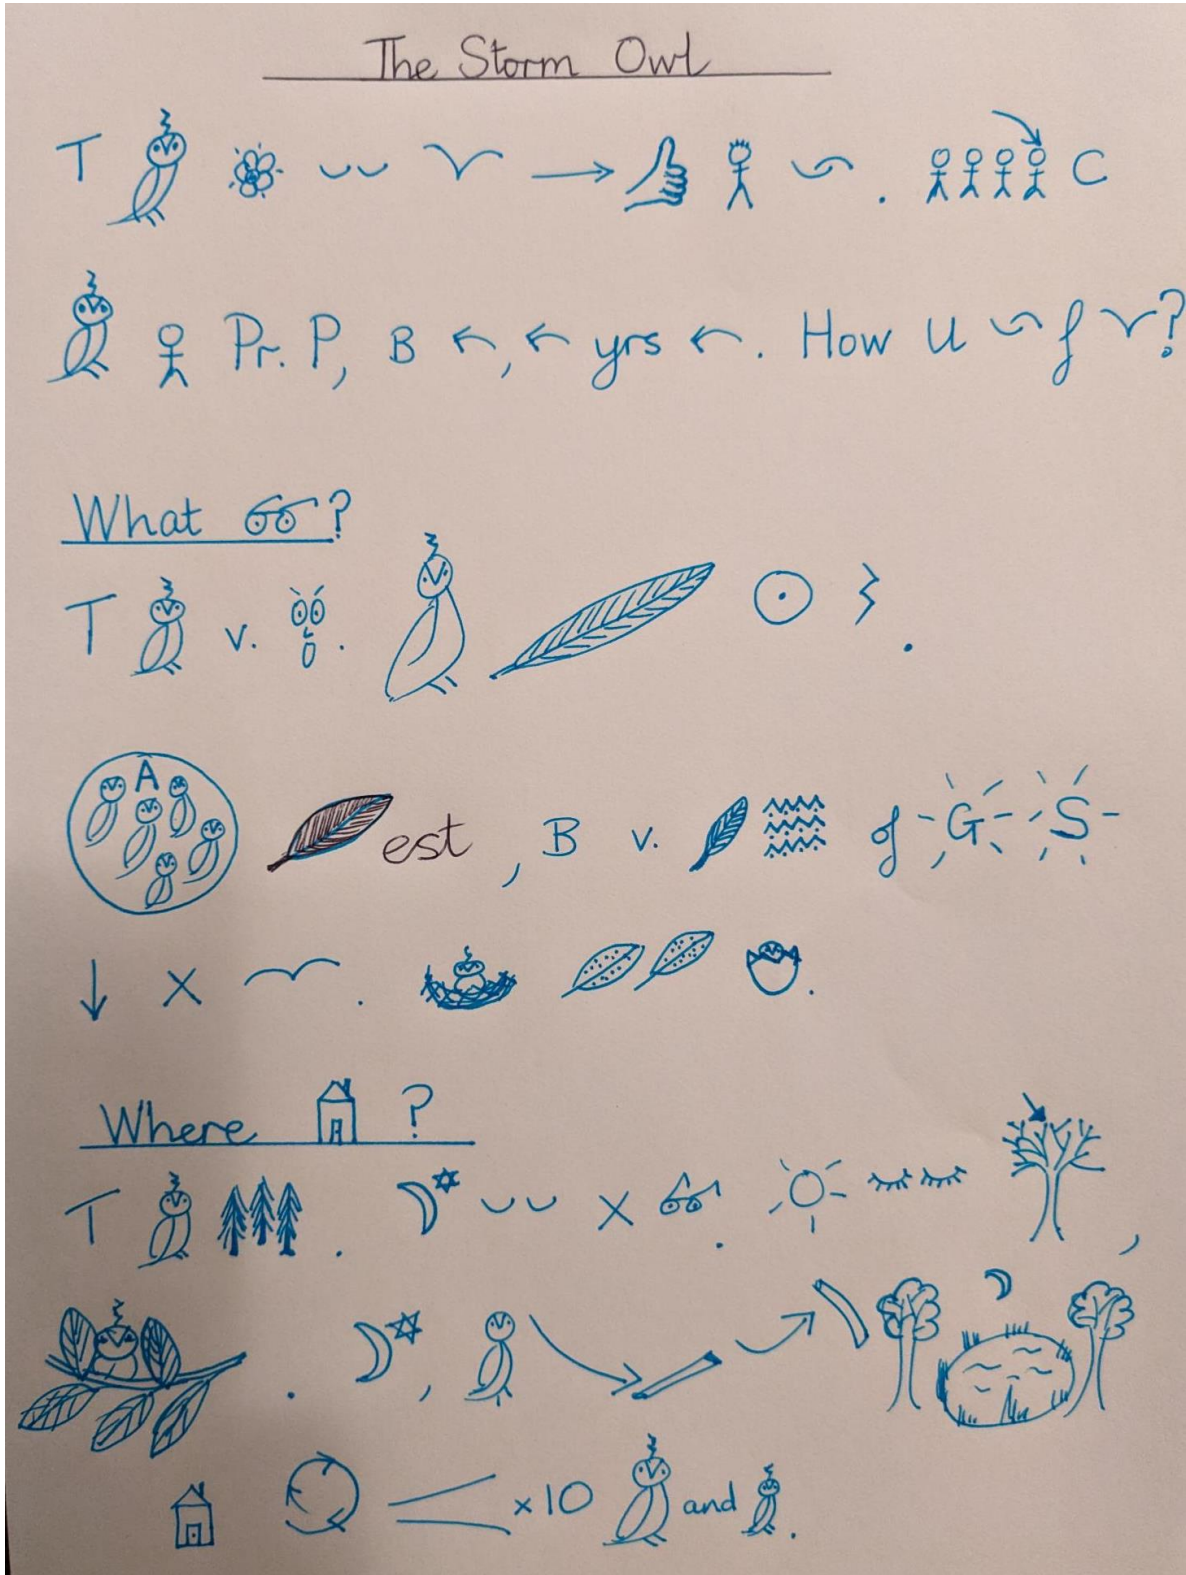 The Storm Owl
T → . C
Pr. P, B ←, ← yrs ←. How U of ?
What ?
T v. . .
A est, B v. of G S
↓ x . .
Where ?
T . x . ,
. ,
x10 and .